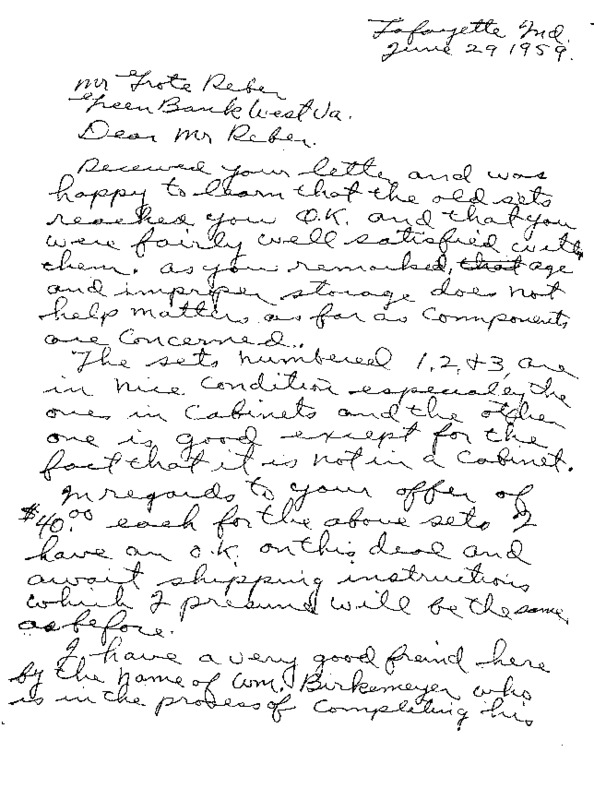 Lafayette Ind.
June 29 1959.
Mr Grote Reber
Green Bank West Va.
Dear Mr Reber.
Received your letter and was
happy to learn that the old sets
reached you O.K. and that you
were fairly well satisfied with
them. as you remarked, that age
and improper storage does not
help matters as far as components
are concerned.
The sets numbered 1, 2, +3, are
in nice condition especialey the
ones in Cabinets and the other
one is good except for the
fact that it is not in a cabinet.
In regards to your offer of
$40.00 each for the above sets I
have an o.k. on this deal and
await shipping instructions
which I presume will be the same
as before.
I have a very good freind here
by the name of Wm. Birkemeyer who
is in the process of completing his